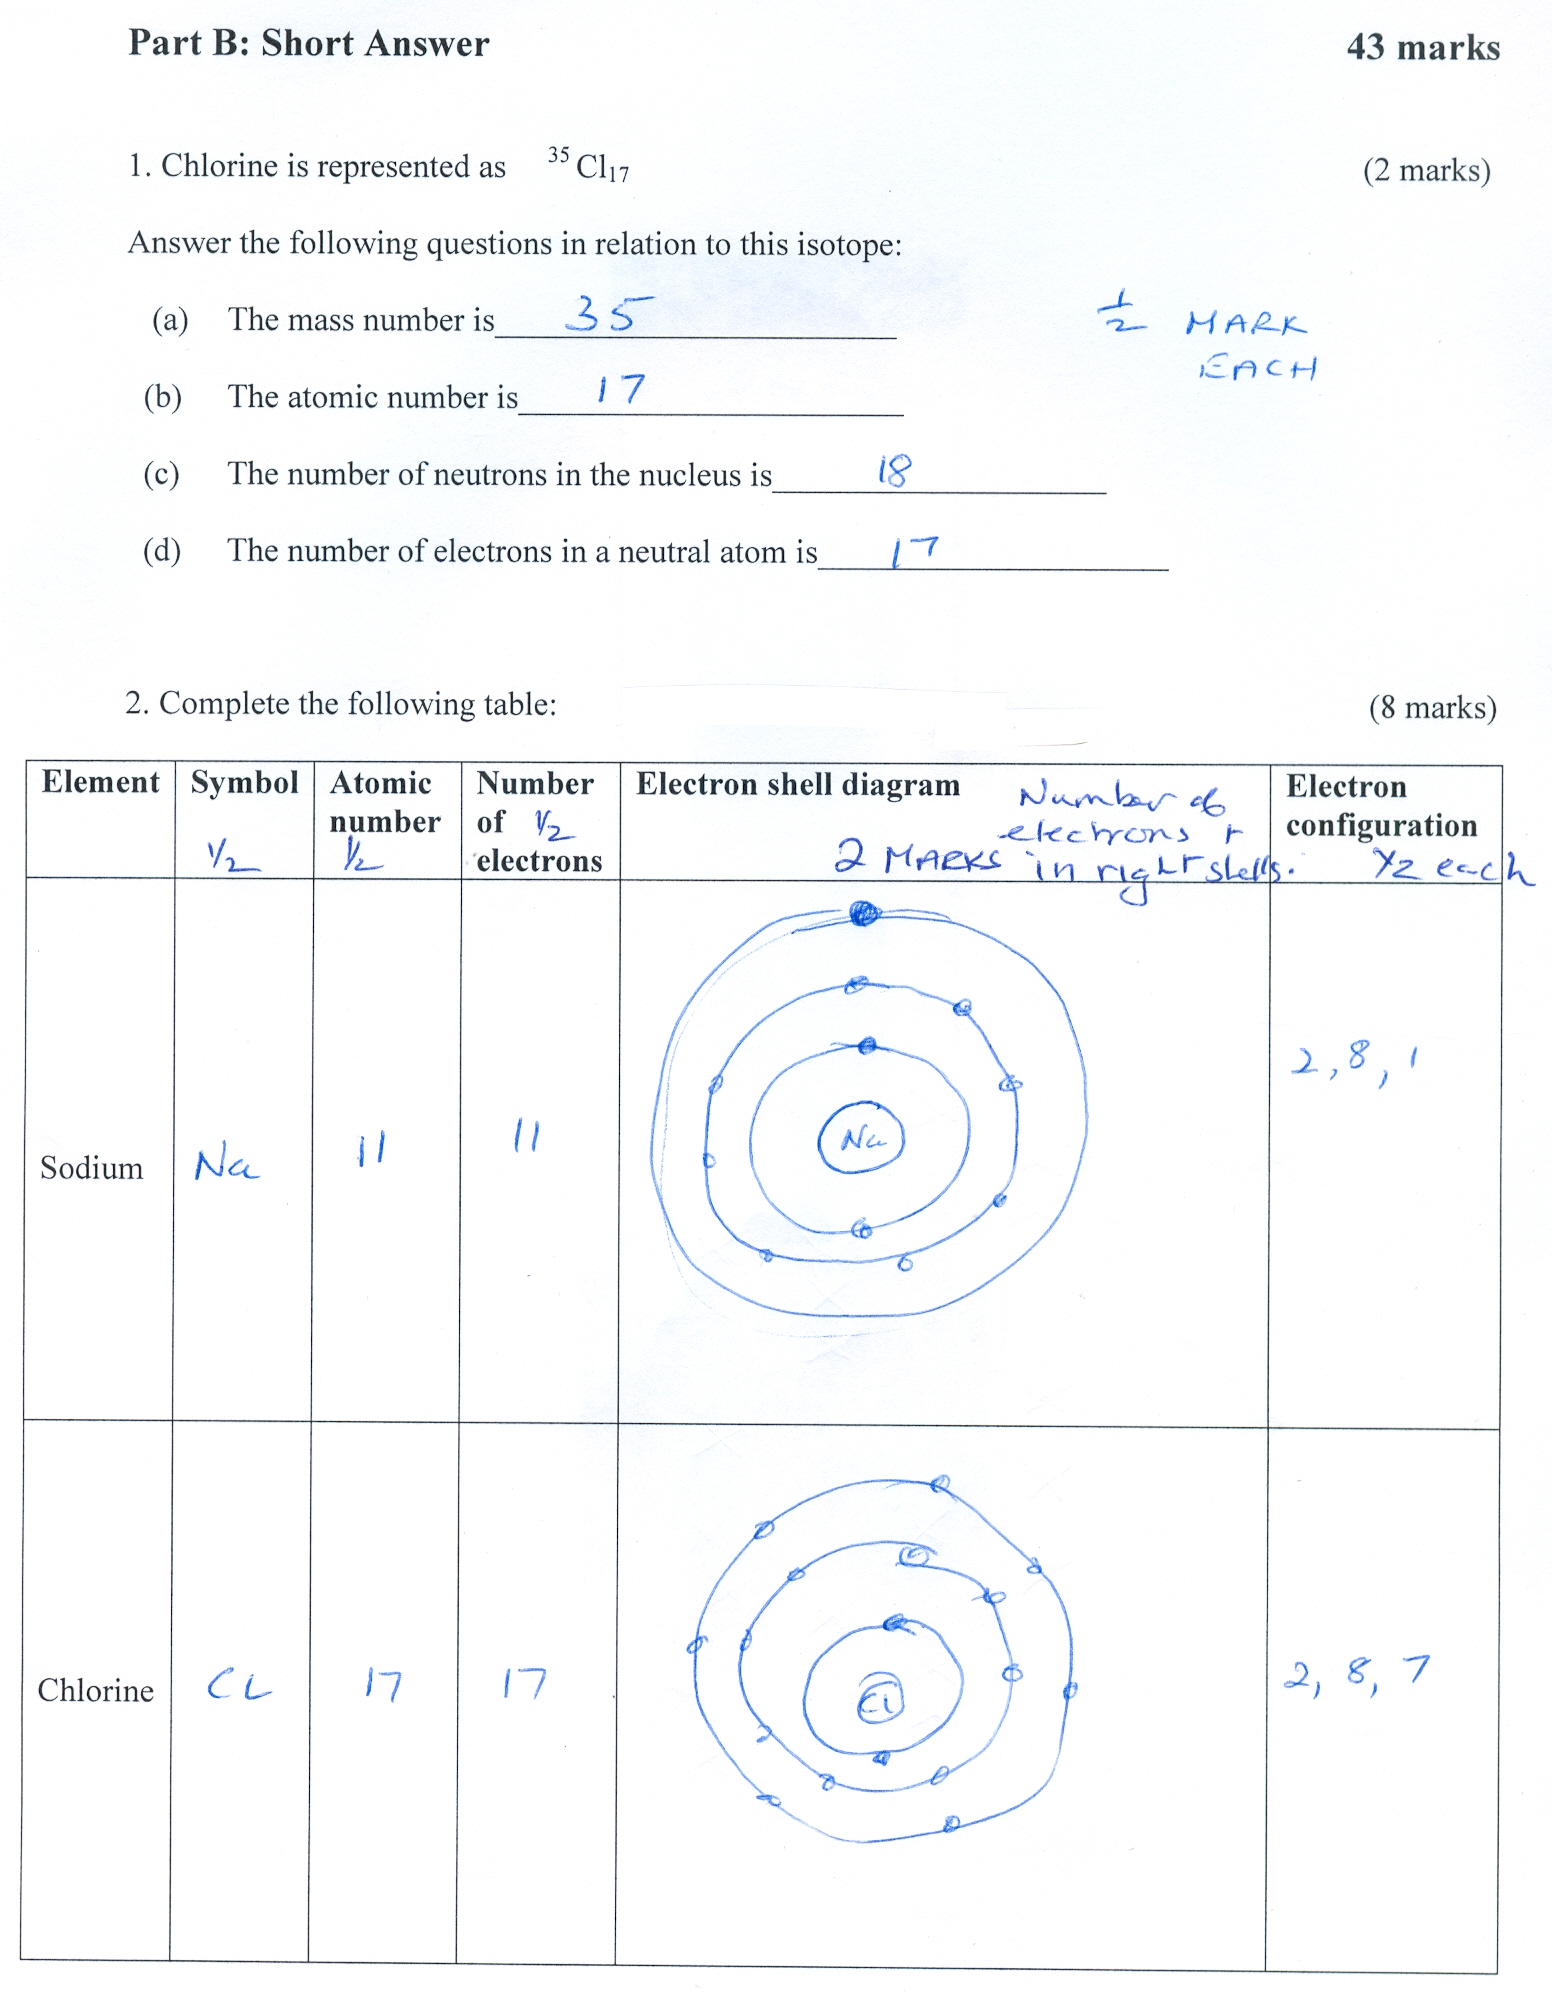 Part B: Short Answer 43 marks
1. Chlorine is represented as ³⁵Cl₁₇ (2 marks)
Answer the following questions in relation to this isotope:
(a) The mass number is 35
½ MARK
EACH
(b) The atomic number is 17
(c) The number of neutrons in the nucleus is 18
(d) The number of electrons in a neutral atom is 17
2. Complete the following table: (8 marks)
Element
Symbol
½
Atomic
number
½
Number
of ½
electrons
Electron shell diagram
2 MARKS
Number of
electrons +
in right shells.
Electron
configuration
½ each
Sodium
Na
11
11
Na
2, 8, 1
Chlorine
CL
17
17
Cl
2, 8, 7